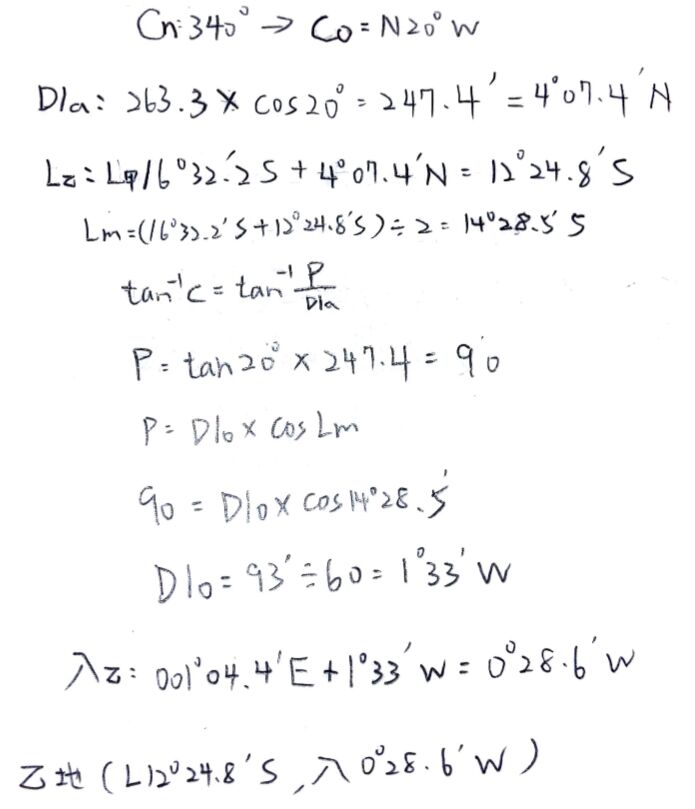 Cn:340° → Co = N20°W
Dla: 263.3 × cos20° = 247.4' = 4°07.4'N
L乙: L甲16°32.'2S + 4°07.4'N = 12°24.8'S
Lm=(16°32.2'S+12°24.8'S)÷2=14°28.5'S
tan⁻¹C = tan⁻¹ P/Dla
P = tan20° × 247.4 = 90'
P = Dlo × cos Lm
90 = Dlo × cos14°28.5'
Dlo = 93' ÷ 60 = 1°33' W
入乙: 001°04.4'E + 1°33'W = 0°28.6'W
乙地 (L12°24.8'S, 入0°28.6'W)